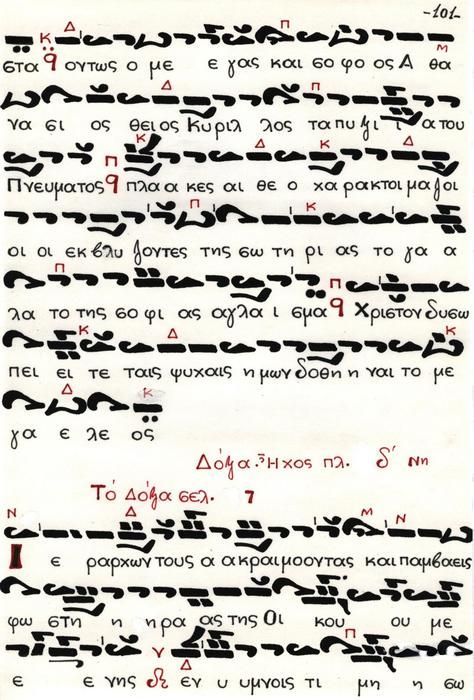 -101-
Κ Δ Π Μ
στα οντως ο με ε γας και σο φο ος Α θα
Δ Π
να σι ος θει ος Κυριλ λος τα πυξι ι α του
Κ Δ Κ Δ
Πνευματος πλα α κες αι θε ο χα ρα κτοι μα ζοι
Π Κ
οι οι εκ βλυ ζοντες της σω τη ρι ας το γα α
Π Π
λα το της σο φι ας αγλα ι σμα Χριστον δυσω
Κ Δ Κ
πει ει τε ταις ψυχαις η μων δοθη η ναι το με
Δ Κ
γα ε λε ος
Δόξα. Ἦχος πλ. δ' Νη
Τό Δόξα σελ. 7
Ν Δ Μ Ν
Ι ε ραρχων τους α α κραι μο οντας και παμβα εις
φω στη η η ρα ας της Οι κου ου με
γ Δ Π
ε ε νης εν υ υμνοις τι μη η σω